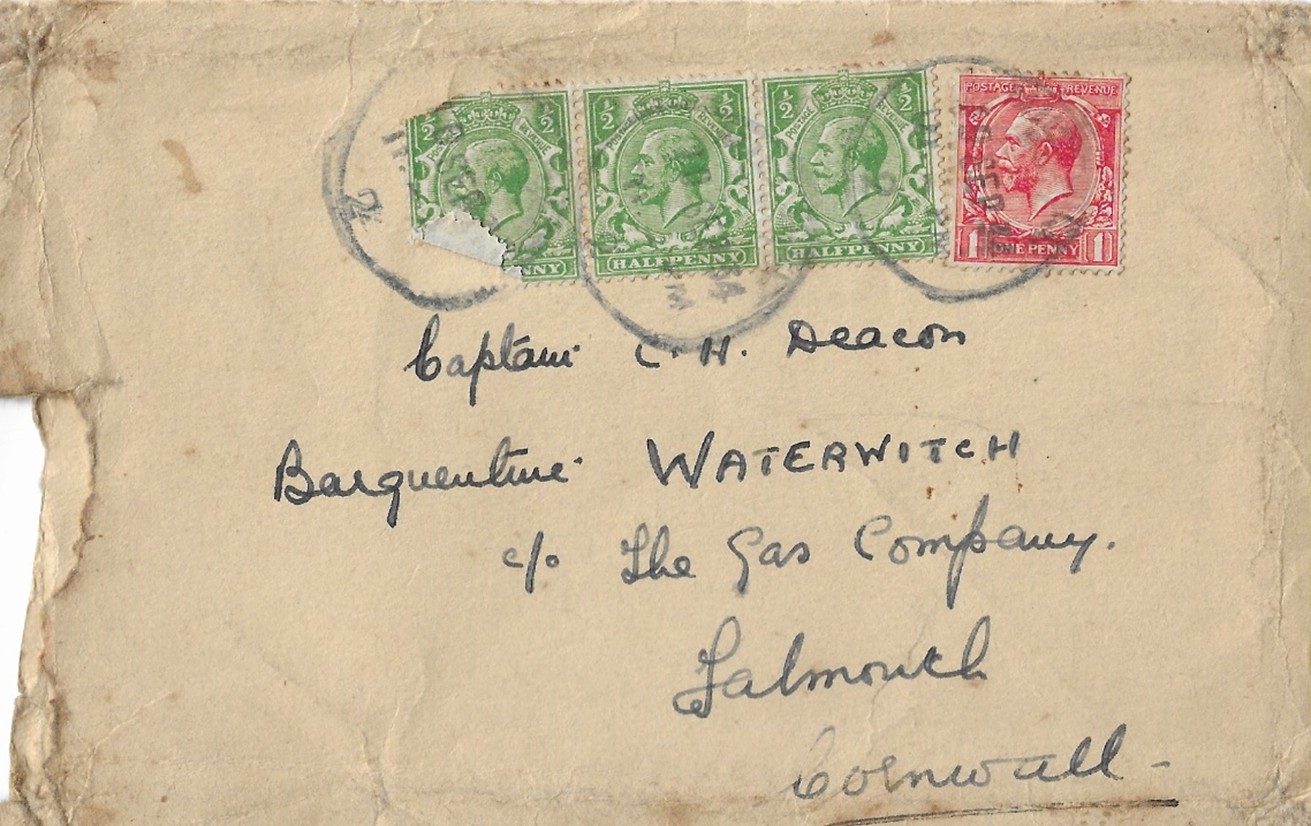 ½ ½ ½ ½ ½ ½
POSTAGE REVENUE POSTAGE REVENUE POSTAGE REVENUE POSTAGE REVENUE
NNY HALFPENNY HALFPENNY 1 ONE PENNY 1
2
SEP
Captain C. H. Deacon
Barquentine WATERWITCH
c/o The Gas Company.
Falmouth
Cornwall -